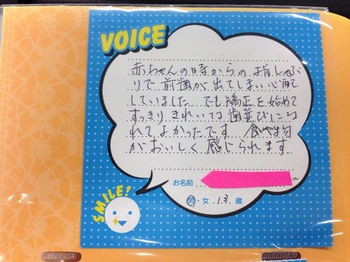 VOICE
赤ちゃんの時からの指しゃぶ
りで前歯が出てしまい心配
していました。でも矯正を始めて
すっきりきれいな歯並びにな
れてよかったです。食べ物
がおいしく感じられます
お名前
SMILE!
男・女 13 歳